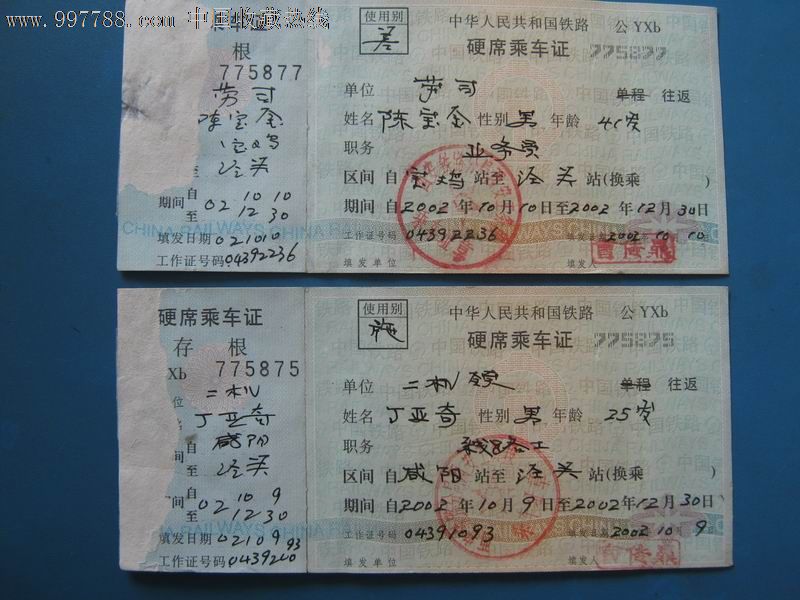 www.997788.com 中国收藏热线
根
775877
劳司
陈宝金
宝鸡
至 泾关
期间 自 02 10 10
至 12 30
填发日期 021010
工作证号码 04392236
使用别
差
中华人民共和国铁路 公 YXb
硬席乘车证 775877
单位 劳司 单程 往返
姓名 陈宝金 性别 男 年龄 41岁
职务 业务员
区间 自 宝鸡 站至 泾关 站(换乘 )
期间 自2002 年10月10日至2002 年12月30日
工作证号码 04392236 填发日期 2002 10 10
填发单位 填发人
硬席乘车证
存 根
Xb 775875
位 二机
丁亚奇
间 自 咸阳
至 泾关
间 自 02 10 9
至 12 30
填发日期 02109
工作证号码
使用别
施
中华人民共和国铁路 公 YXb
硬席乘车证 775875
单位 二机 单程 往返
姓名 丁亚奇 性别 男 年龄 25岁
职务 线路工
区间 自 咸阳 站至 泾关 站(换乘 )
期间 自2002 年10月9日至2002 年12月30日
工作证号码 04391093 2002 10 9
填发单位 填发人